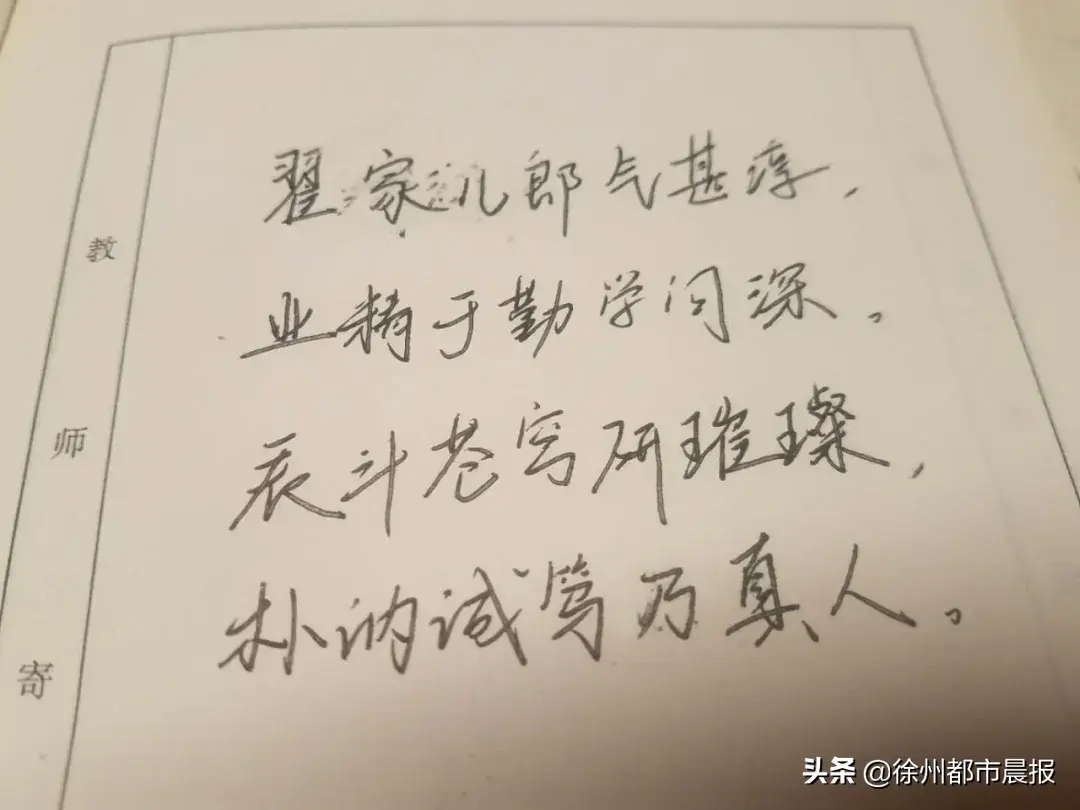 翟家儿郎气甚淳，
业精于勤学问深。
辰斗苍穹研璀璨，
朴讷诚笃乃真人。
教师寄
头条 @徐州都市晨报